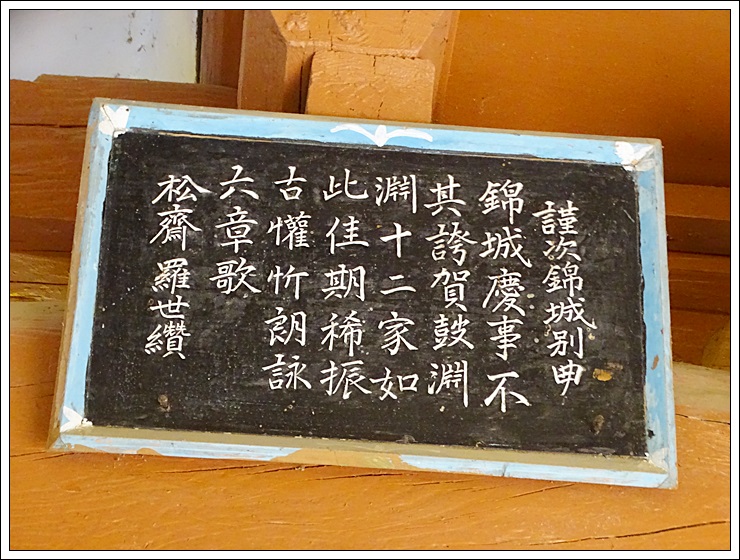 謹次錦城別申
錦城慶事不
其誇賀鼓淵
淵十二家如
此佳期稀振
古懽忻朗詠
六章歌
松齋羅世纘